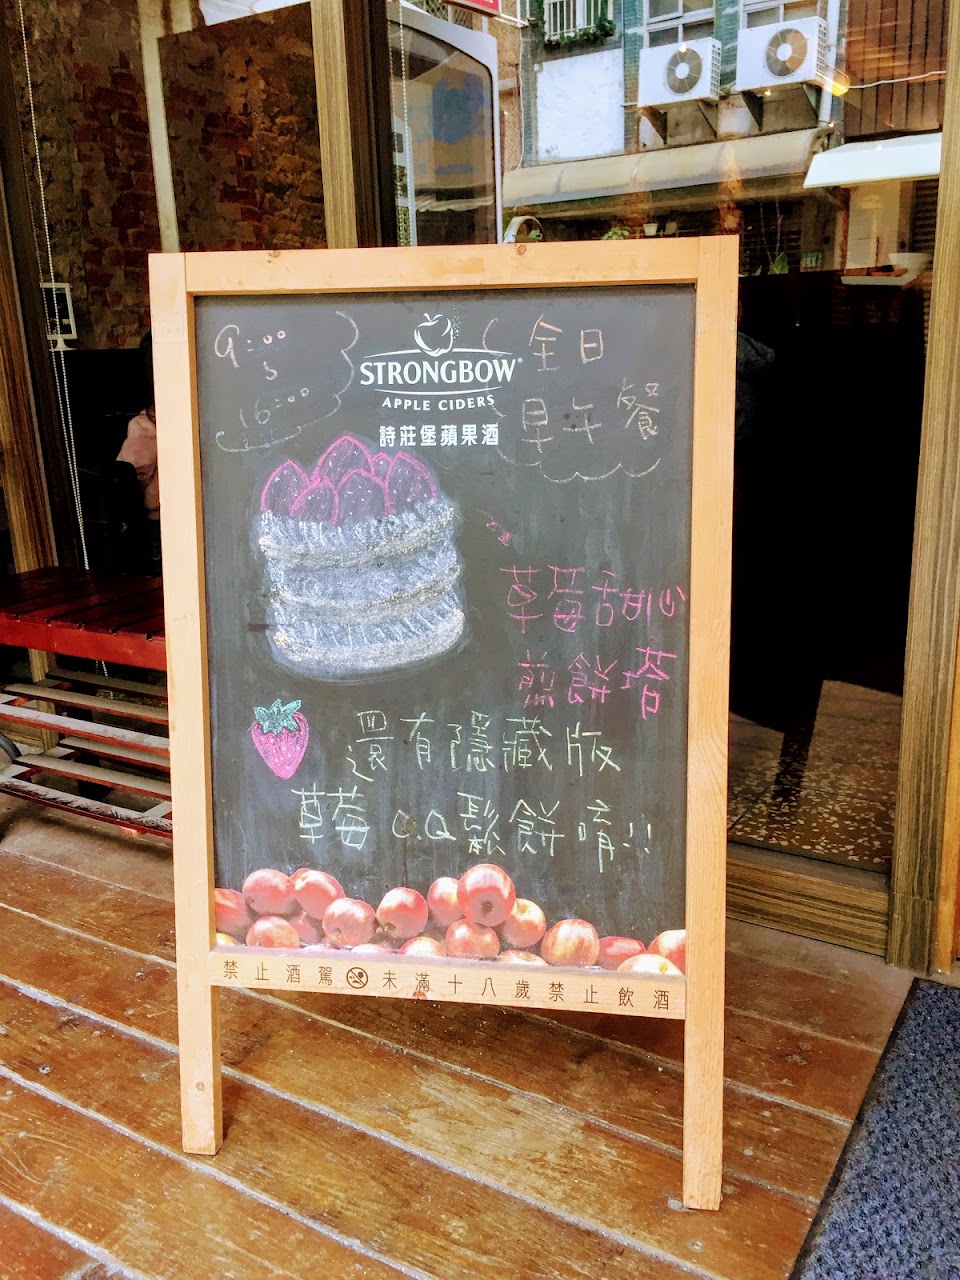 9:00
16:00
STRONGBOW®
APPLE CIDERS
詩莊堡蘋果酒
全日
早午餐
草莓甜心
煎餅塔
還有隱藏版
草莓QQ鬆餅唷!!
禁止酒駕 未滿十八歲禁止飲酒